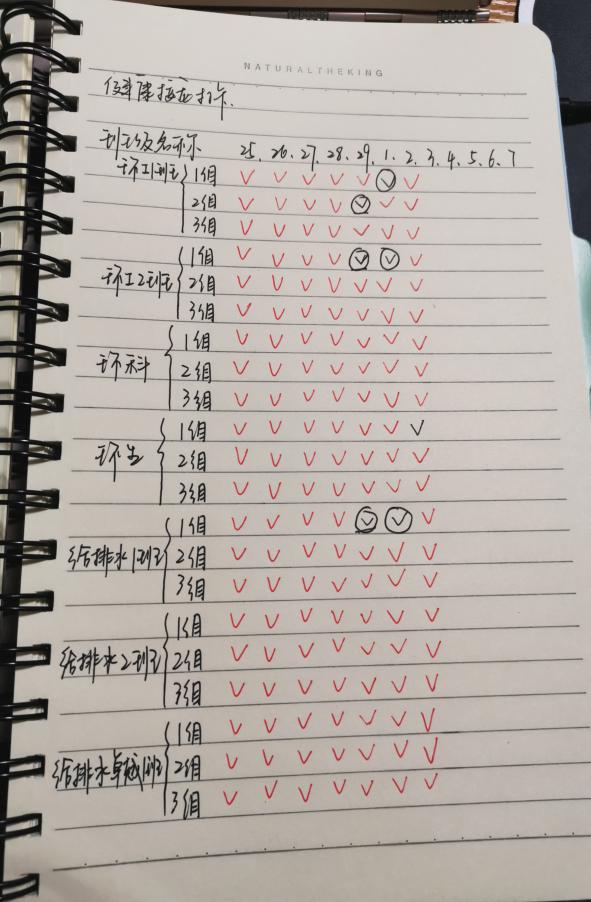 NATURALTHEKING
健康接龙打卡.
班级名称 25、26、27、28、29、1、2、3、4、5、6、7
环工1班 1组 ✓ ✓ ✓ ✓ ✓ ✓ ✓
2组 ✓ ✓ ✓ ✓ ✓ ✓ ✓
3组 ✓ ✓ ✓ ✓ ✓ ✓ ✓
环工2班 1组 ✓ ✓ ✓ ✓ ✓ ✓ ✓
2组 ✓ ✓ ✓ ✓ ✓ ✓ ✓
3组 ✓ ✓ ✓ ✓ ✓ ✓ ✓
环科 1组 ✓ ✓ ✓ ✓ ✓ ✓ ✓
2组 ✓ ✓ ✓ ✓ ✓ ✓ ✓
3组 ✓ ✓ ✓ ✓ ✓ ✓ ✓
环生 1组 ✓ ✓ ✓ ✓ ✓ ✓ ✓
2组 ✓ ✓ ✓ ✓ ✓ ✓ ✓
3组 ✓ ✓ ✓ ✓ ✓ ✓ ✓
给排水1班 1组 ✓ ✓ ✓ ✓ ✓ ✓ ✓
2组 ✓ ✓ ✓ ✓ ✓ ✓ ✓
3组 ✓ ✓ ✓ ✓ ✓ ✓ ✓
给排水2班 1组 ✓ ✓ ✓ ✓ ✓ ✓ ✓
2组 ✓ ✓ ✓ ✓ ✓ ✓ ✓
3组 ✓ ✓ ✓ ✓ ✓ ✓ ✓
给排水卓越1班 1组 ✓ ✓ ✓ ✓ ✓ ✓ ✓
2组 ✓ ✓ ✓ ✓ ✓ ✓ ✓
3组 ✓ ✓ ✓ ✓ ✓ ✓ ✓